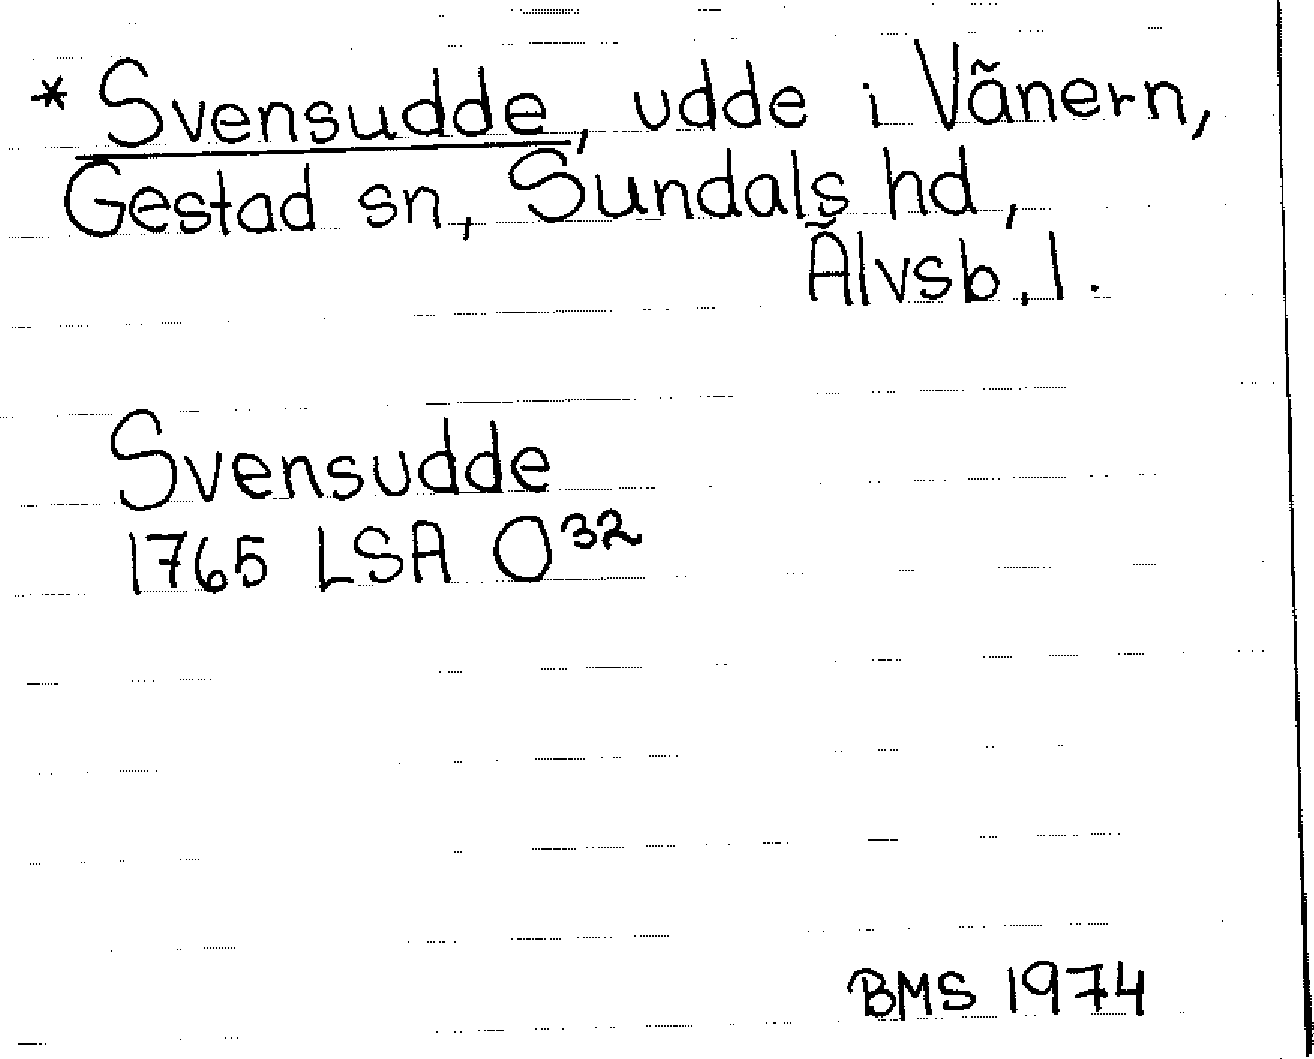 * Svensudde, udde i Vänern,
Gestad sn, Sundals hd,
Älvsb. l.
Svensudde
1765 LSA O³²
BMS 1974